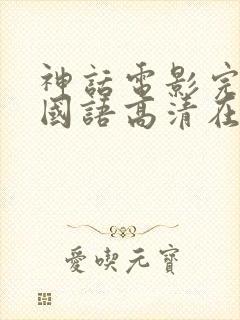 神話電影完
國語高清在
愛喫元寶